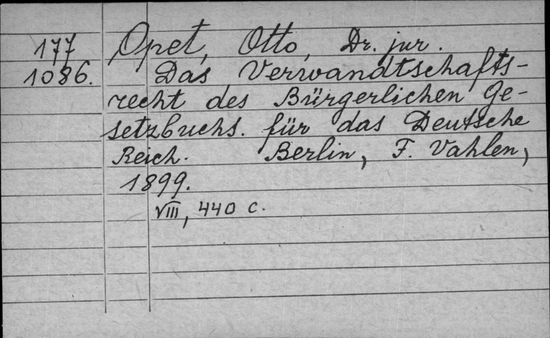 177 Opet, Otto, Dr. jur.
1086. Das Verwandtschafts-
recht des Bürgerlichen Ge-
setzbuchs. für das Deutsche
Reich. Berlin, F. Vahlen,
1899.
VIII, 440 c.